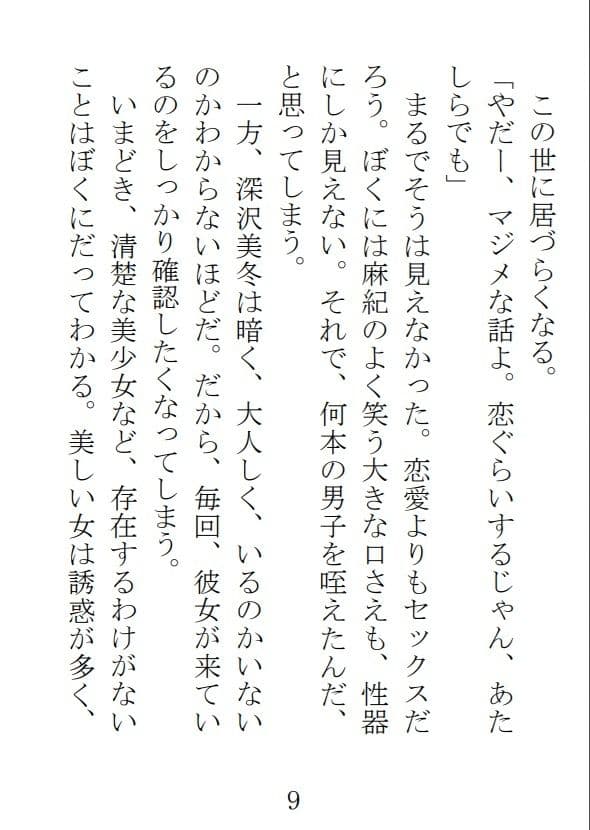 この世に居づらくなる。
「やだー、マジメな話よ。恋ぐらいするじゃん、あた
しらでも」
まるでそうは見えなかった。恋愛よりもセックスだ
ろう。ぼくには麻紀のよく笑う大きな口さえも、性器
にしか見えない。それで、何本の男子を咥えたんだ、
と思ってしまう。
一方、深沢美冬は暗く、大人しく、いるのかいない
のかわからないほどだ。だから、毎回、彼女が来てい
るのをしっかり確認したくなってしまう。
いまどき、清楚な美少女など、存在するわけがない
ことはぼくにだってわかる。美しい女は誘惑が多く、
9